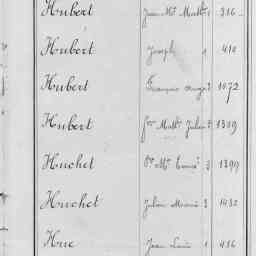 Hubert Jean Mie Math 1 316
Hubert Joseph 1 410
Hubert François ange 2 1072
Hubert Math Julien 2 1309
Huchet Mie 3 1399
Huchet Julien Marie 3 1432
Hue Jean Louis 1 456